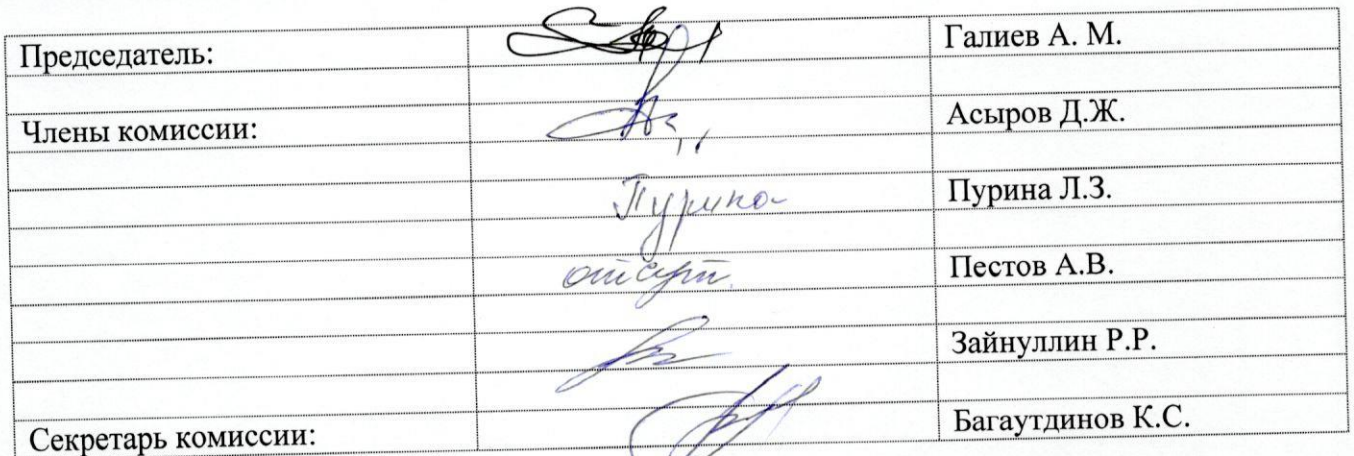 Председатель: Галиев А. М.
Члены комиссии: Асыров Д.Ж.
Пурина Пурина Л.З.
отсутт. Пестов А.В.
Зайнуллин Р.Р.
Секретарь комиссии: Багаутдинов К.С.